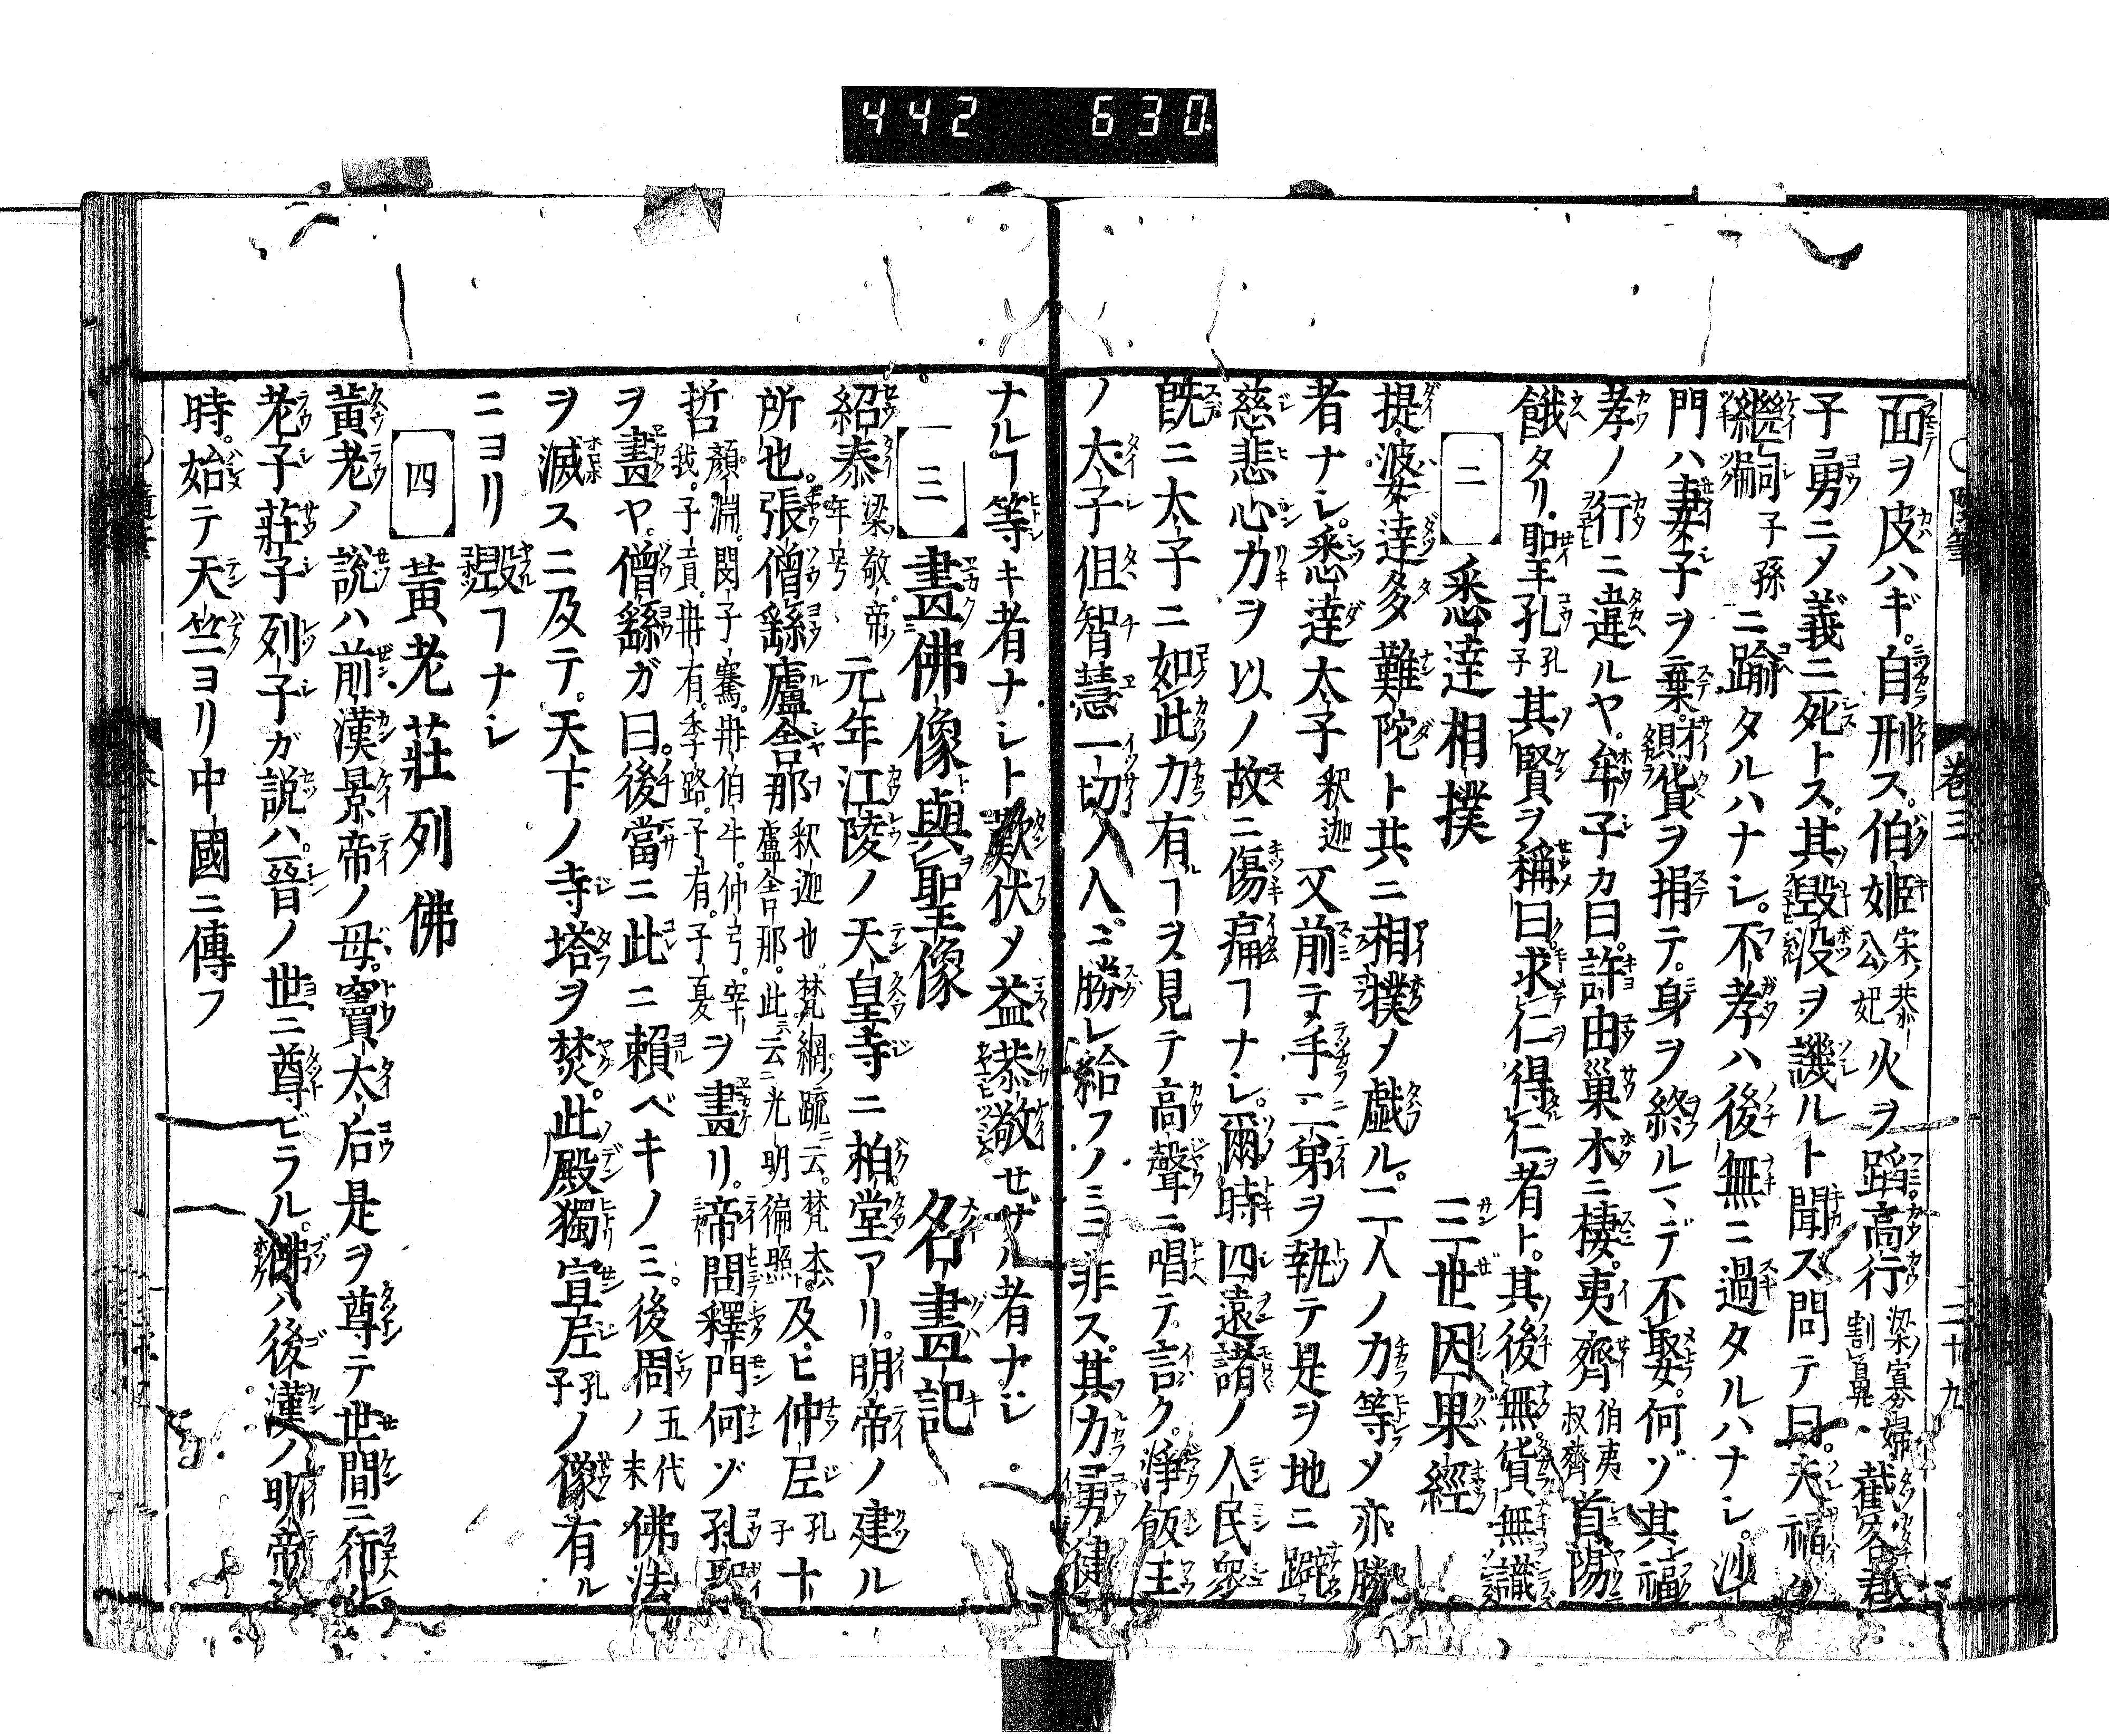 442 630
卷三 二十九
面ヲ皮ハギ。自刑ス。伯姫 宋ノ恭公ノ妃 火ヲ蹈。高行 梁ノ寡婦割鼻 截容
子勇ニメ義ニ死トス。其毀没ヲ譏ルト聞ス問テ曰。夫福
繼嗣 子孫 ニ踰タルハナシ。不孝ハ後無ニ過タルハナシ。沙
門ハ妻子ヲ棄。財貨ヲ捐テ。身ヲ終ルマデ不娶。何ゾ其福
孝ノ行ニ違ルヤ。牟子カ曰。許由巣木ニ棲。夷齊 伯夷叔齊 首陽
餓タリ。聖孔 孔子 其賢ヲ稱曰求仁得仁者ト。其後無貨無ヲ譏
二 悉達相撲 三世因果經
提波達多難陀ト共ニ相撲メ戯ル。二人ノ力等メ亦勝
者ナシ。悉達太子 釈迦 又前テ手二弟ヲ執テ是ヲ地ニ躃
慈悲心力ヲ以ノ故ニ傷痛ヿナシ。爾時四遠諸ノ人民衆
既ニ太子ニ如此力有ヿヲ見テ高聲ニ唱テ言ク。淨飯王
ノ太子但智慧一切人ニ勝レ給フノミニ非ス。其力勇健
ナルヿ等キ者ナシト歎伏メ益恭敬せザル者ナシ
三 畫佛像與聖像 名畫記
紹泰 梁敬帝年号 元年江陵ノ天皇寺ニ柏堂アリ。明帝ノ建ル
所也。張僧繇盧舎那 釈迦也梵網ノ疏ニ云。梵本盧舎那。此ニ云ニ光明徧照ト 及ヒ仲尼 孔子 十
哲 顔淵。閔子騫。冉伯牛。仲弓。宰我。子貢。冉有。季路。子有。子夏 ヲ畫リ。帝問釋門何ゾ孔聖
ヲ畫ヤ。僧繇ガ曰。後當ニ此ニ賴ベキノミ。後周 五代末 ノ佛法
ヲ滅スニ及テ。天下ノ寺塔ヲ焚。此殿獨宣尼 孔子 ノ像有ル
ニヨリ毀ヿナシ
四 黃老莊列佛
黃老ノ說ハ前漢景帝ノ母。竇太后是ヲ尊テ世間ニ行ル
老子莊子列子ガ說ハ。晉ノ世ニ尊ビラル。佛ハ後漢ノ明帝ノ
時。始テ天竺ヨリ中國ニ傳フ